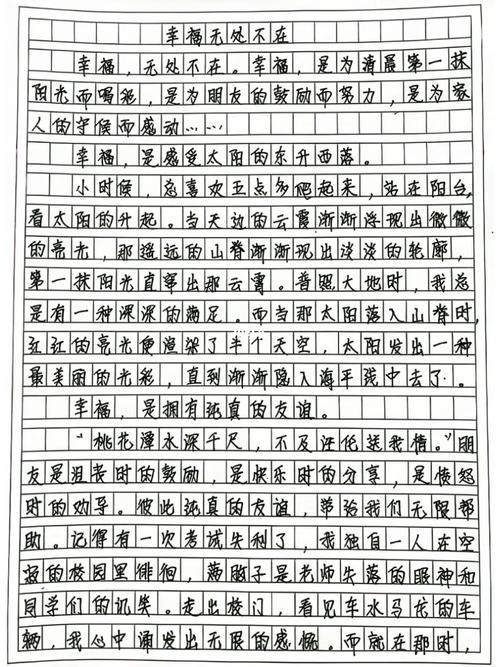 幸福无处不在
幸福,无处不在。幸福,是为清晨第一抹
阳光而喝彩,是为朋友的鼓励而努力,是为家
人的守候而感动……
幸福,是感受太阳的东升西落。
小时候,总喜欢五点多爬起来,站在阳台,
看太阳的升起。当天边的云霞渐渐浮现出微微
的亮光,那遥远的山脊渐渐现出淡淡的轮廓,
第一抹阳光直穿出那云霄。普照大地时,我总
是有一种深深的满足。而当那太阳落入山脊时,
红红的亮光便渲染了半个天空,太阳发出一种
最美丽的光彩,直到渐渐隐入海平线中去了。
幸福,是拥有纯真的友谊。
“桃花潭水深千尺,不及汪伦送我情。”朋
友是沮丧时的鼓励,是快乐时的分享,是愤怒
时的劝导。彼此纯真的友谊,带给我们无限帮
助。记得有一次考试失利了,我独自一人在空
寂的校园里徘徊,满脑子是老师失落的眼神和
同学们的讥笑。走出校门,看见车水马龙的车
辆,我心中涌发出无限的感慨。而就在那时,